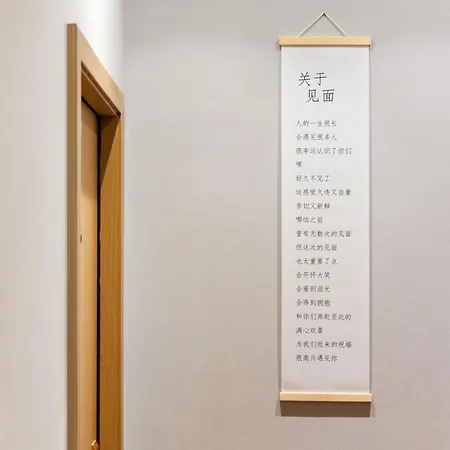 关于
见面
人的一生很长
会遇见很多人
很幸运认识了你们
嘿
好久不见了
这感觉久违又自豪
亲切又新鲜
哪怕之前
曾有无数次的见面
但这次的见面
也太重要了点
会开怀大笑
会看到泪光
会得到拥抱
和你们奔赴至此的
满心欢喜
为我们而来的祝福
很高兴遇见你